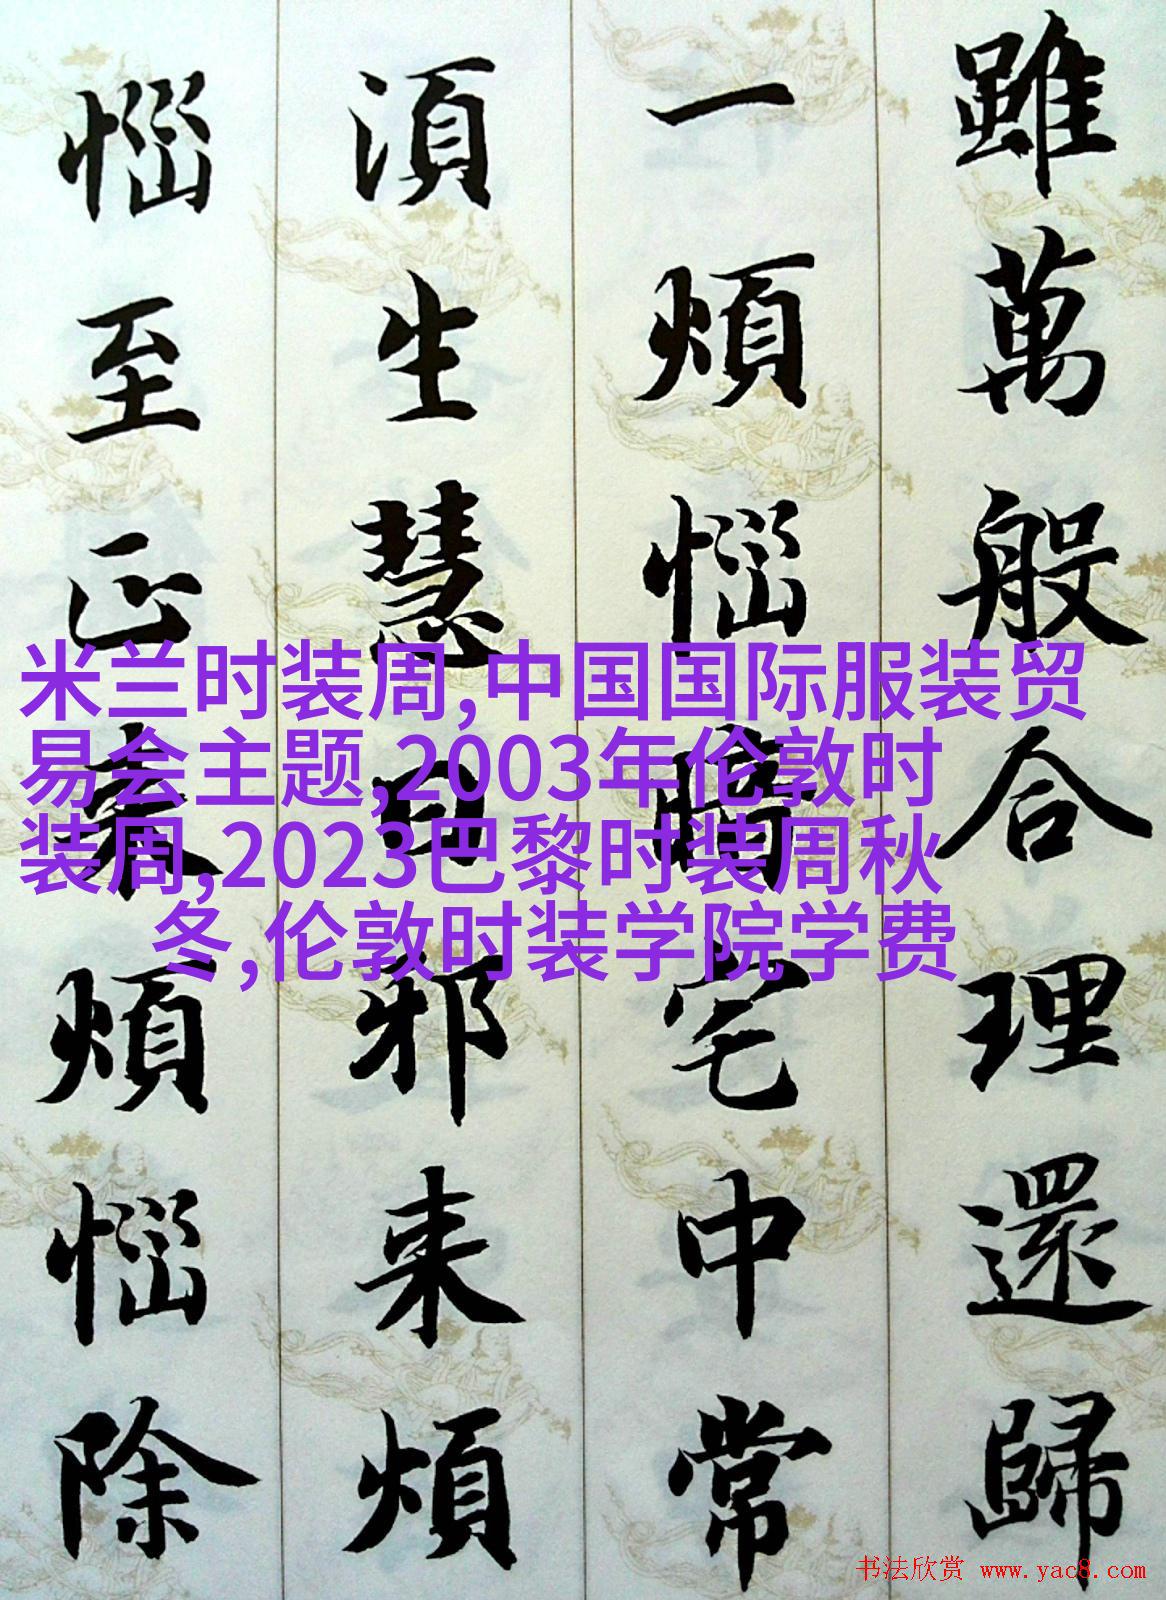 雖萬般合理還歸
一煩惱暗宅中常
湏生慧日邪来煩
惱至正来煩惱除
米兰时装周,中国国际服装贸
易会主题,2003年伦敦时
装周,2023巴黎时装周秋
冬,伦敦时装学院学费
书法欣赏 www.yac8.com